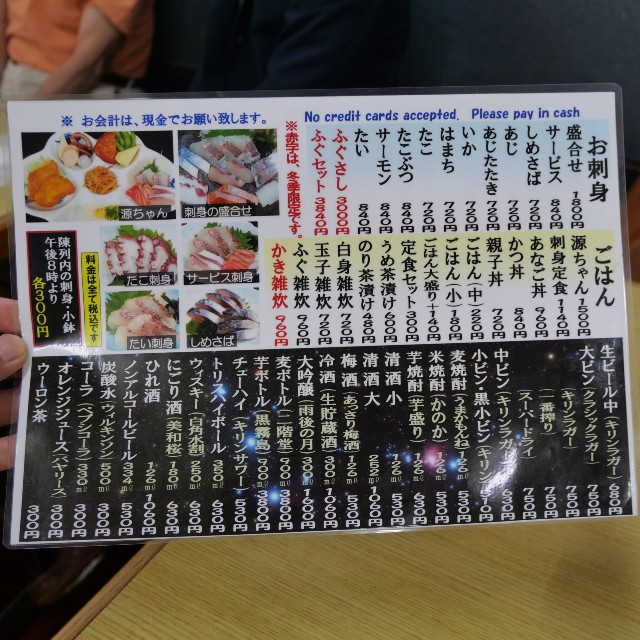 ※ お会計は、現金でお願い致します。
No credit cards accepted. Please pay in cash
お刺身
盛合せ 1800円
サービス 840円
しめさば 720円
あじ 720円
あじたたき 720円
いか 720円
はまち 720円
たこ 720円
たこぶつ 840円
サーモン 840円
たい 840円
ふぐさし 3000円
ふぐセット 3840円
※赤字は、冬季限定です。
ごはん
源ちゃん 1500円
刺身定食 1100円
あなご丼 900円
かつ丼 720円
親子丼 720円
ごはん(中) 220円
ごはん(小) 180円
ごはん大盛り +140円
定食セット 300円
うめ茶漬け 600円
のり茶漬け 480円
白身雑炊 720円
玉子雑炊 600円
ふぐ雑炊 960円
かき雑炊 960円
源ちゃん
刺身の盛合せ
たこ刺身
サービス刺身
たい刺身
しめさば
料金は全て税込です
陳列内の刺身・小鉢
午後8時より
各300円
生ビール中(キリンラガー) 680円
大ビン(クラシックラガー) 750円
(キリンラガー) 750円
(一番搾り) 750円
(スーパードライ) 750円
中ビン(キリンラガー) 630円
小ビン・黒小ビン(キリン) 510円
麦焼酎(うまかもんね) 126ml 530円
米焼酎(かのか) 126ml 530円
芋焼酎(芋盛り) 126ml 530円
清酒 小 126ml 530円
清酒 大 252ml 1060円
梅酒(あっさり梅酒) 126ml 530円
冷酒(生貯蔵酒) 300ml 1060円
大吟醸(雨後の月) 300ml
麦ボトル(二階堂) 700ml 3800円
芋ボトル(黒霧島) 700ml 3800円
チューハイ(キリンサワー) 530円
トリスハイボール 350ml 530円
ウィスキー(白角水割) 250ml 630円
にごり酒(美和桜) 180ml 630円
ひれ酒 126ml 1060円
ノンアルコールビール 334ml 530円
炭酸水(ウィルキンソン) 500ml 300円
コーラ(ペプシコーラ) 300ml 300円
オレンジジュース(バヤリース) 300円
ウーロン茶 300円